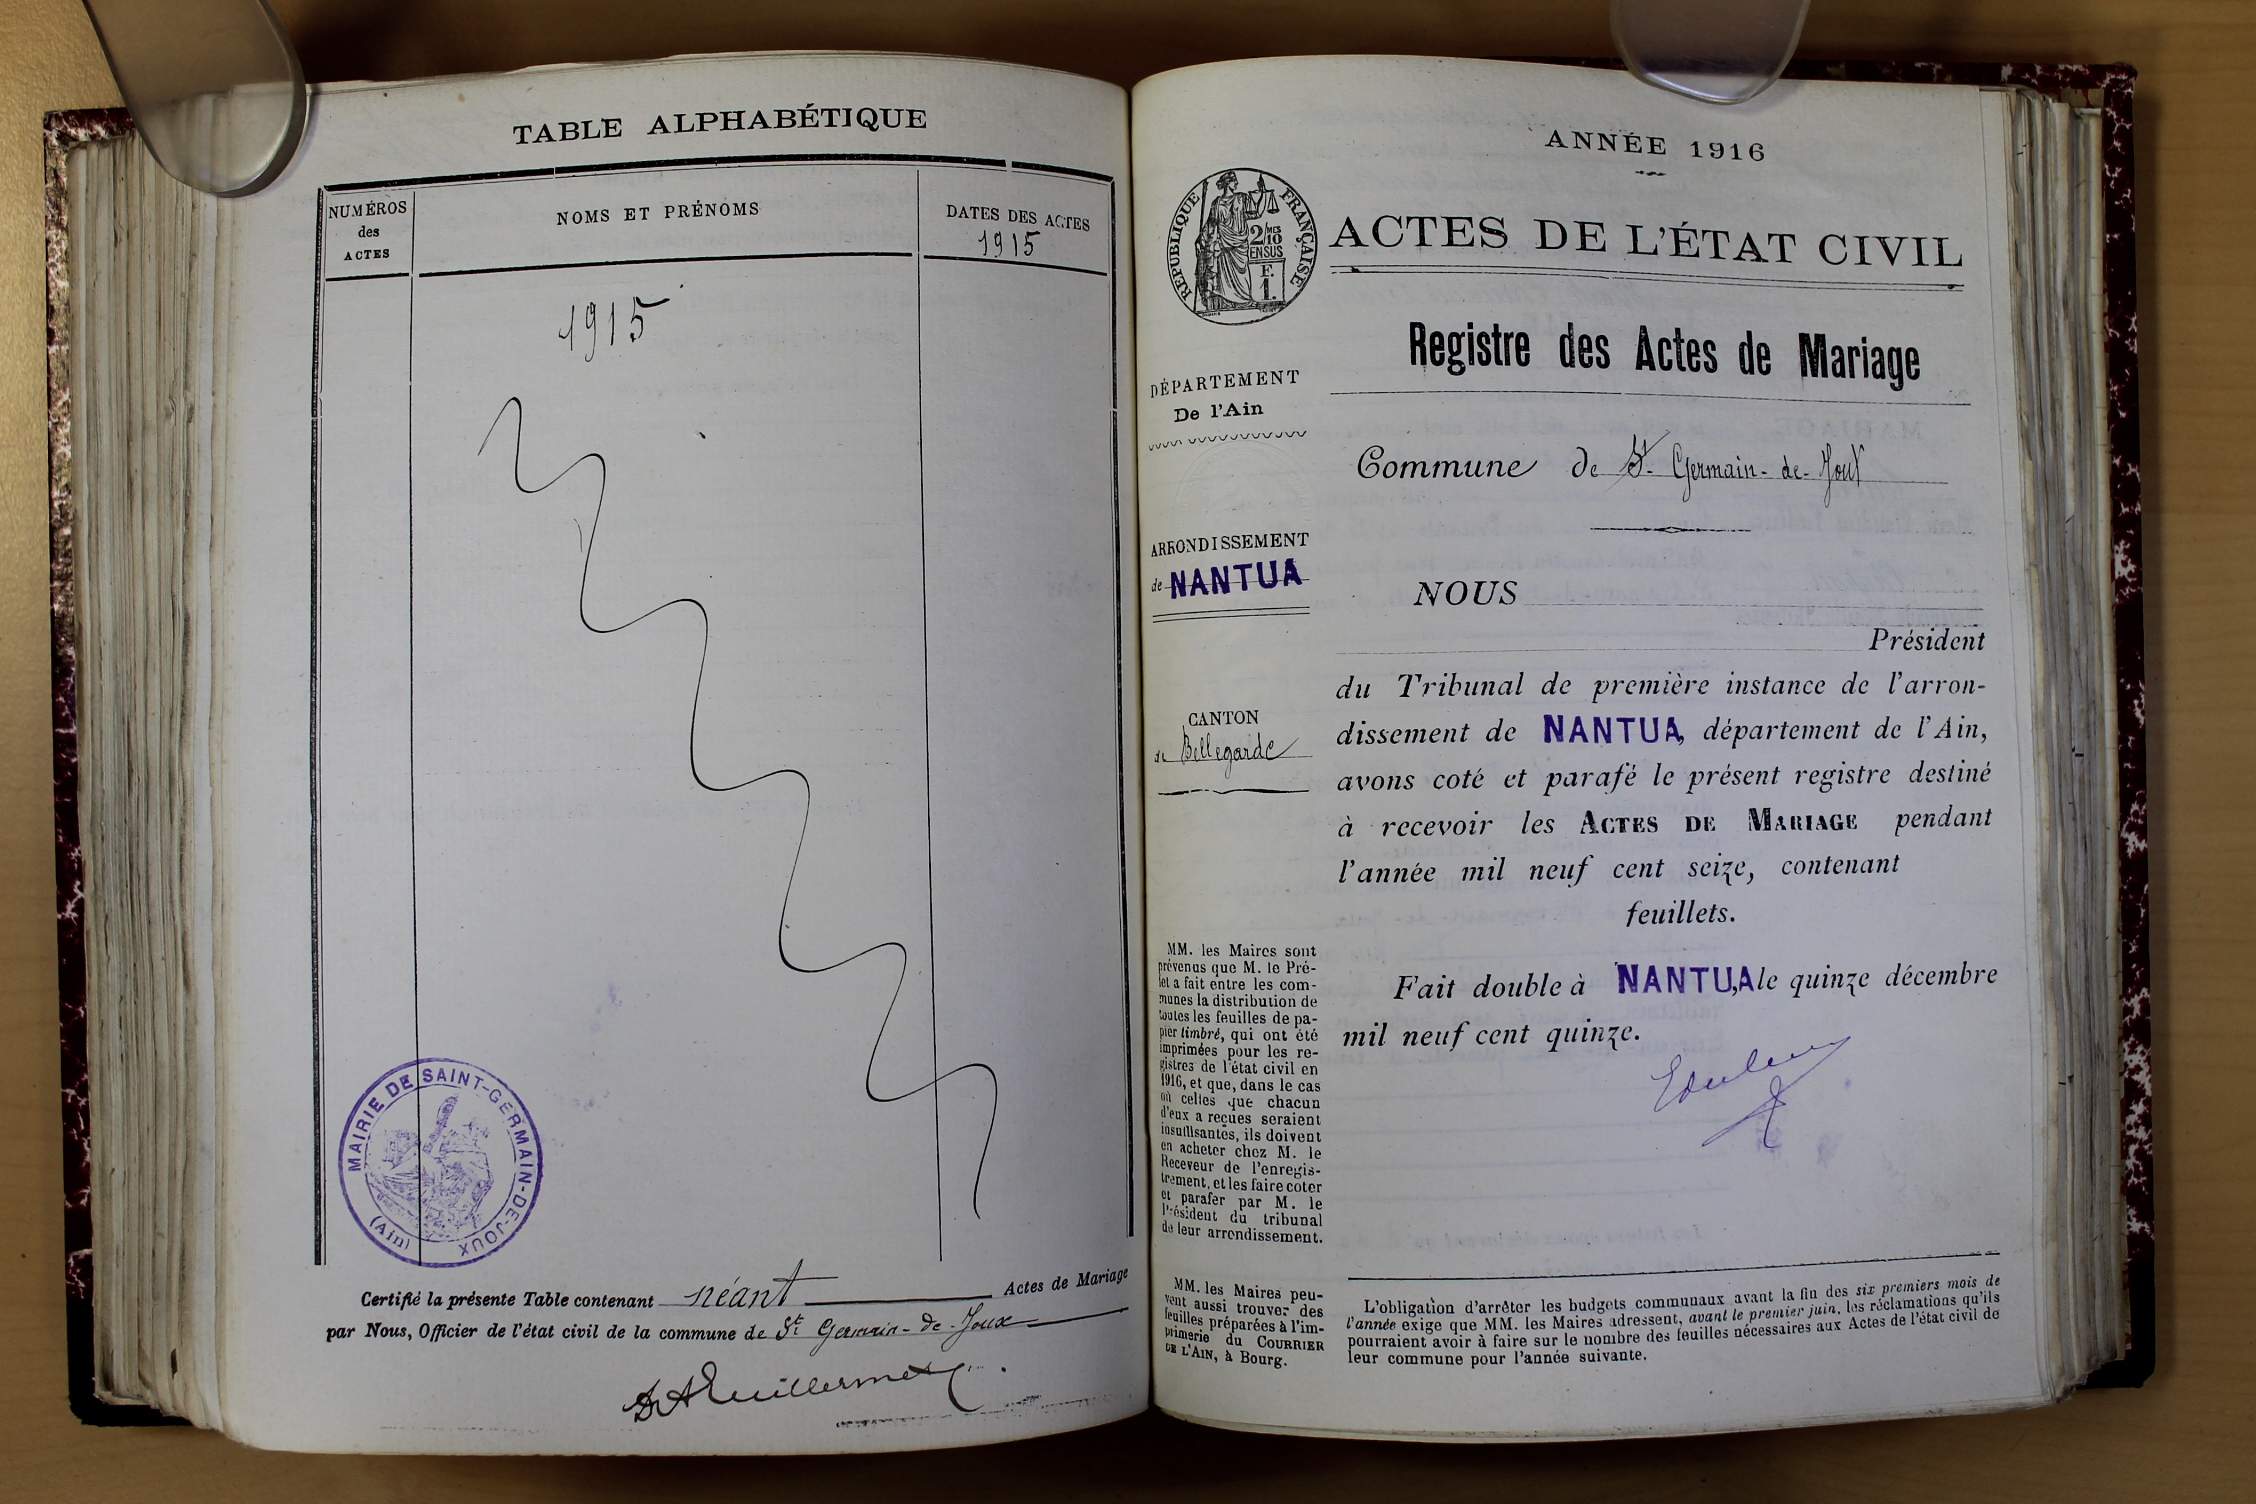 TABLE ALPHABÉTIQUE
NUMÉROS
des
ACTES
NOMS ET PRÉNOMS
DATES DES ACTES
1915
1915
MAIRIE DE SAINT-GERMAIN-DE-JOUX
(Ain)
Certifié la présente Table contenant néant Actes de Mariage
par Nous, Officier de l'état civil de la commune de St Germain-de-Joux
ANNÉE 1916
RÉPUBLIQUE FRANÇAISE
2/10 MES
EN SUS
F.
1.
ACTES DE L'ÉTAT CIVIL
Registre des Actes de Mariage
DÉPARTEMENT
De l'Ain
Commune de St- Germain-de-Joux
ARRONDISSEMENT
de NANTUA
CANTON
de Bellegarde
NOUS
Président
du Tribunal de première instance de l'arron-
dissement de NANTUA, département de l'Ain,
avons coté et parafé le présent registre destiné
à recevoir les ACTES DE MARIAGE pendant
l'année mil neuf cent seize, contenant
feuillets.
Fait double à NANTUA, le quinze décembre
mil neuf cent quinze.
MM. les Maires sont
prévenus que M. le Pré-
fet a fait entre les com-
munes la distribution de
toutes les feuilles de pa-
pier timbré, qui ont été
imprimées pour les re-
gistres de l'état civil en
1916, et que, dans le cas
où celles que chacun
d'eux a reçues seraient
insuffisantes, ils doivent
en acheter chez M. le
Receveur de l'enregis-
trement, et les faire coter
et parafer par M. le
Président du tribunal
de leur arrondissement.
MM. les Maires peu-
vent aussi trouver des
feuilles préparées à l'im-
primerie du COURRIER
DE L'AIN, à Bourg.
L'obligation d'arrêter les budgets communaux avant la fin des six premiers mois de
l'année exige que MM. les Maires adressent, avant le premier juin, les réclamations qu'ils
pourraient avoir à faire sur le nombre des feuilles nécessaires aux Actes de l'état civil de
leur commune pour l'année suivante.